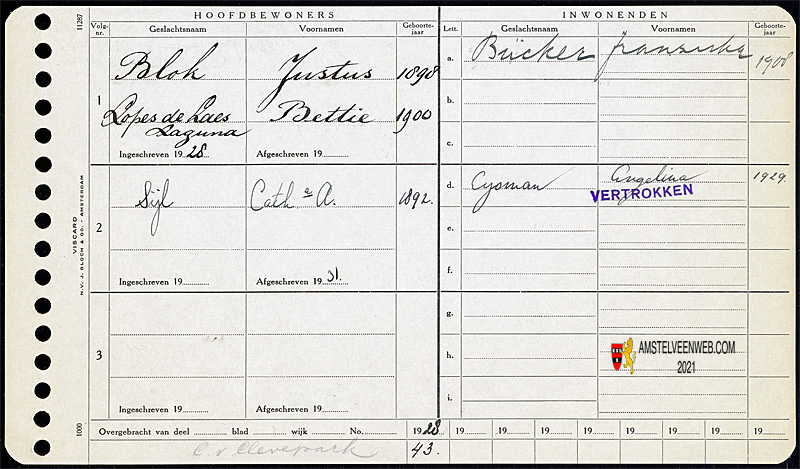 HOOFDBEWONERS
Volg-nr. Geslachtsnaam Voornamen Geboorte-jaar
1
Blok Justus 1898
Lopes de Laes Bettie 1900
Laguna
Ingeschreven 19 28 Afgeschreven 19
2
Sijl Cath. a A. 1892.
Ingeschreven 19 Afgeschreven 19 31.
3
Ingeschreven 19 Afgeschreven 19
INWONENDEN
Lett. Geslachtsnaam Voornamen Geboorte-jaar
a. Bücker Franziska 1908
b.
c.
d. Cysman Angelina 1929.
VERTROKKEN
e.
f.
g.
h.
i.
AMSTELVEENWEB.COM
2021
Overgebracht van deel blad wijk No. 19 28 19 19 19 19 19 19 19 19
C. v Clevepark 43.
11287
VISCARD
N.V. J. BLOCH & CO. - AMSTERDAM
1000